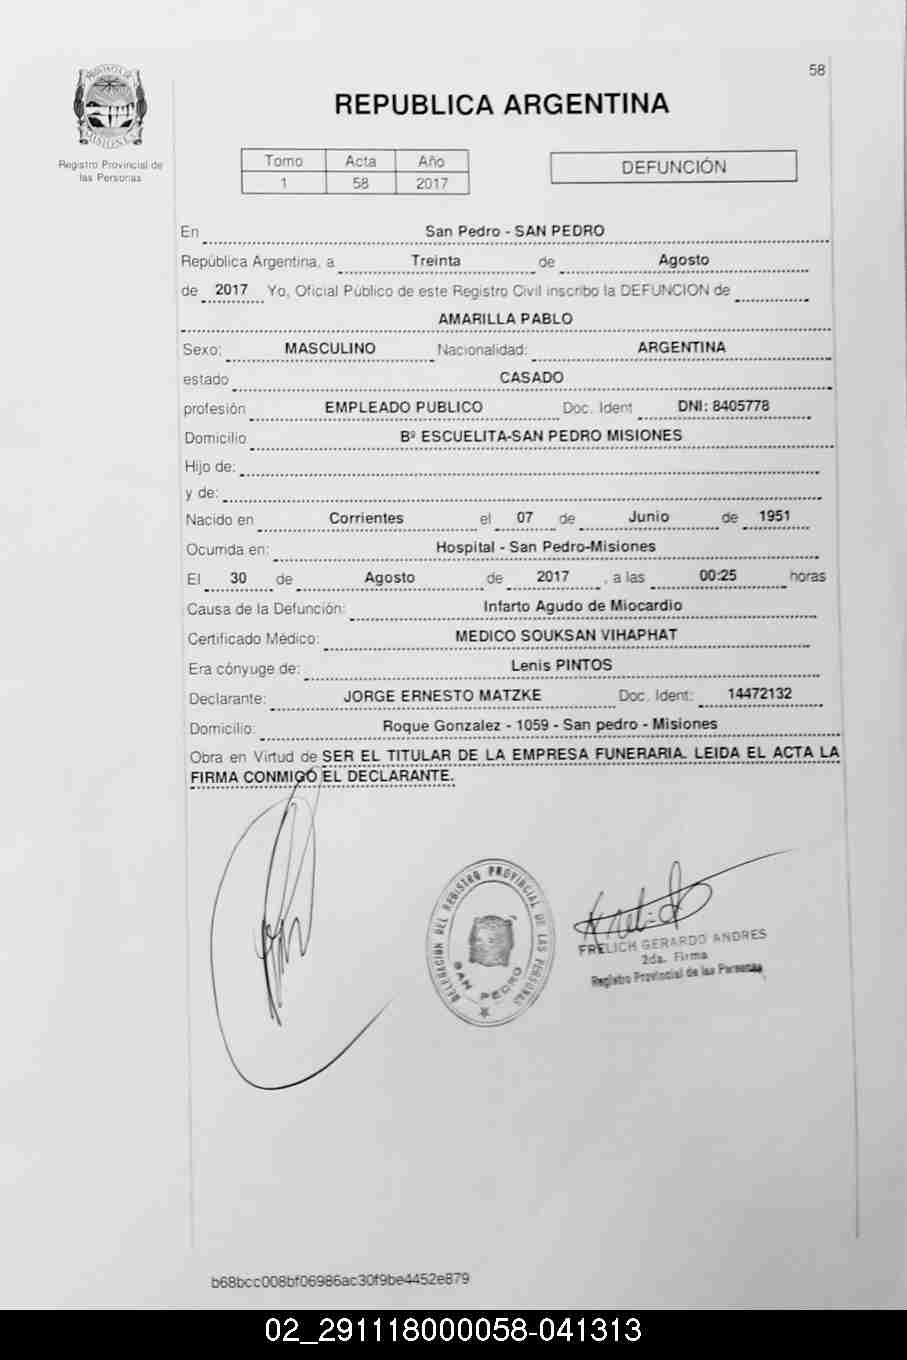 58
PROVINCIA DE
MISIONES
REPUBLICA ARGENTINA
Registro Provincial de
las Personas
Tomo Acta Año
1 58 2017
DEFUNCIÓN
En San Pedro - SAN PEDRO
República Argentina, a Treinta de Agosto
de 2017 Yo, Oficial Público de este Registro Civil inscribo la DEFUNCION de
AMARILLA PABLO
Sexo: MASCULINO Nacionalidad: ARGENTINA
estado CASADO
profesión EMPLEADO PUBLICO Doc. Ident DNI: 8405778
Domicilio Bº ESCUELITA-SAN PEDRO MISIONES
Hijo de:
y de:
Nacido en Corrientes el 07 de Junio de 1951
Ocurrida en: Hospital - San Pedro-Misiones
El 30 de Agosto de 2017 , a las 00:25 horas
Causa de la Defunción: Infarto Agudo de Miocardio
Certificado Médico: MEDICO SOUKSAN VIHAPHAT
Era cónyuge de: Lenis PINTOS
Declarante: JORGE ERNESTO MATZKE Doc. Ident: 14472132
Domicilio: Roque Gonzalez - 1059 - San pedro - Misiones
Obra en Virtud de SER EL TITULAR DE LA EMPRESA FUNERARIA. LEIDA EL ACTA LA
FIRMA CONMIGO EL DECLARANTE.
DELEGACION DEL REGISTRO PROVINCIAL DE LAS PERSONAS
SAN PEDRO
FRELICH GERARDO ANDRES
2da. Firma
Registro Provincial de las Personas
b68bcc008bf06986ac30f9be4452e879
02_291118000058-041313